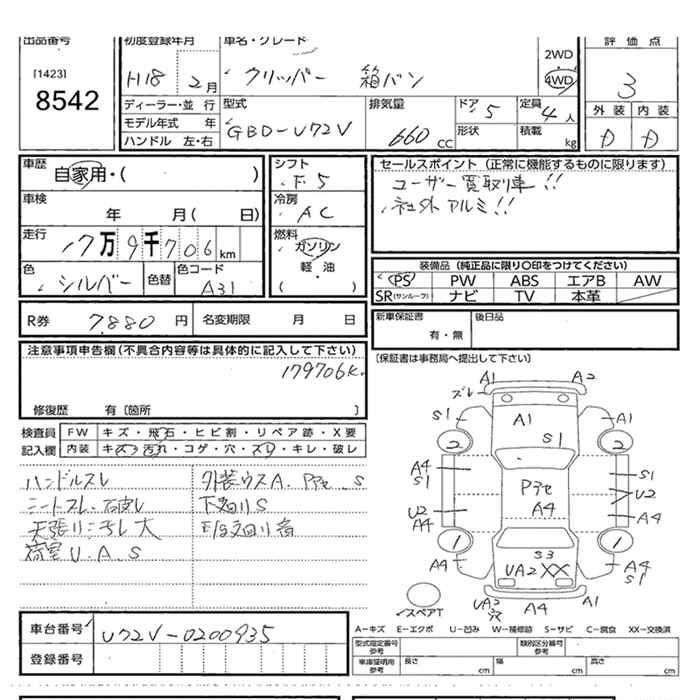 出品番号
[1423]
8542
初度登録年月
H18 2月
車名・グレード
クリッパー 箱バン
2WD
4WD
評価点
3
外装 内装
D D
ディーラー・並行
モデル年式 年
ハンドル 左・右
型式
GBD-U72V
排気量
660 CC
ドア 5
形状
定員 4人
積載 kg
車歴
自家用・( )
車検
年 月( 日)
走行
17万9千706km
色
シルバー
色替
色コード
A31
シフト
F5
冷房
AC
燃料
ガソリン
軽・油
( ・ )
セールスポイント(正常に機能するものに限ります)
ユーザー買取車!!
社外アルミ!!
装備品(純正品に限り○印をつけてください)
PS PW ABS エアB AW
SR(サンルーフ) ナビ TV 本革
R券 7,880円 名変期限 月 日
新車保証書
有・無
後日品
(保証書は事務局へ提出して下さい)
注意事項申告欄(不具合内容等は具体的に記入して下さい)
179706K
修復歴 有〔箇所 〕
検査員
記入欄
FW キズ・飛石・ヒビ割・リペア跡・X要
内装 キズ・汚れ・コゲ・穴・スレ・キレ・破レ
ハンドルスレ
シートスレ
天張り 汚レ大
荷室U.A.S
外装ウスA. S
下廻りS
ズレ
A1 A2
S1 A1 A1
S1
2 2
A4
S1
Pアセ
A4
S1
U2
U2
A4
A4
1 1
A4 S3 A4
S1
UA2 XX
UA2
穴
A4 A1
スペアT
A-キズ E-エクボ U-凹み W-補修跡 S-サビ C-腐食 XX-交換済
車台番号 U72V-0200935
登録番号
型式指定番号
参考
類別区分番号
参考
車庫証明用
参考
長さ cm 幅 cm 高さ cm